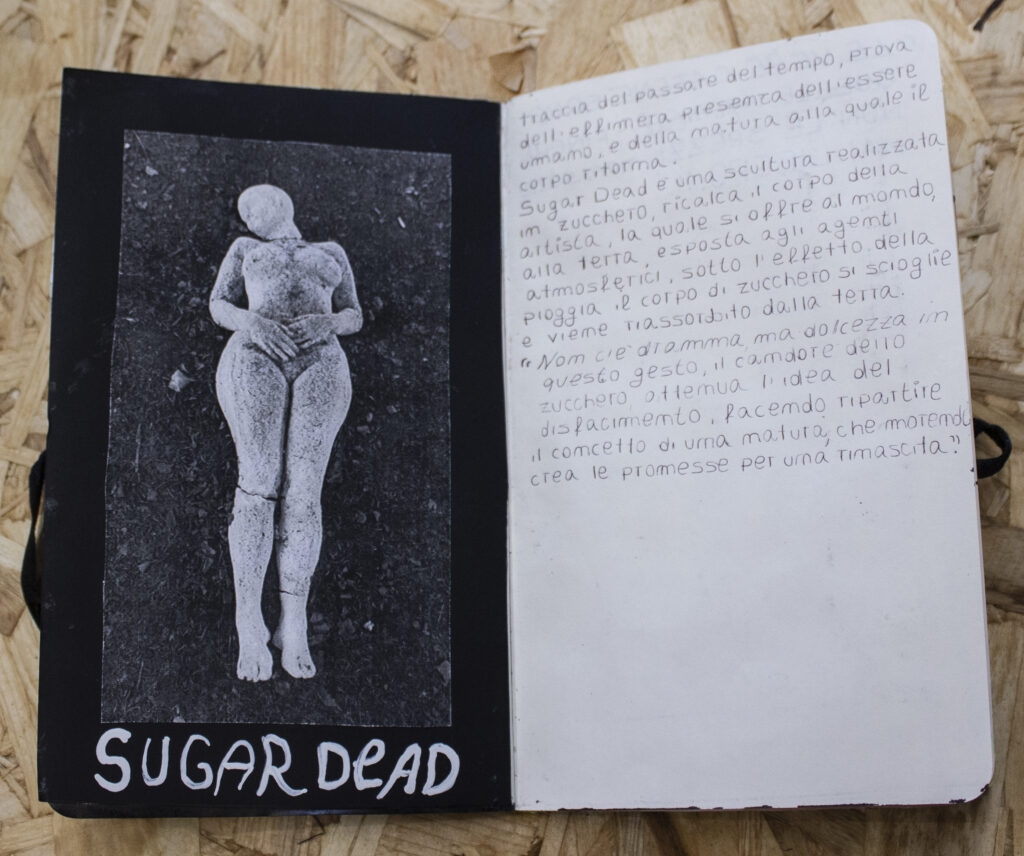 SUGAR DeAD
traccia del passare del tempo, prova
dell'effimera presenza dell'essere
umano, e della natura alla quale il
corpo ritorna.
Sugar Dead è una scultura realizzata
in zucchero, ricalca il corpo della
artista, la quale si offre al mondo,
alla terra, esposta agli agenti
atmosferici, sotto l'effetto della
pioggia il corpo di zucchero si scioglie
e viene riassorbito dalla terra.
"Non c'è dramma, ma dolcezza in
questo gesto, il candore dello
zucchero, attenua l'idea del
disfacimento, facendo ripartire
il concetto di una natura, che morendo
crea le promesse per una rinascita."